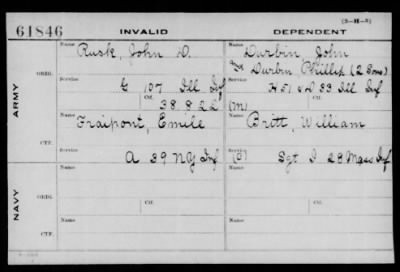 (3-H-3)
61846 INVALID DEPENDENT
Name Rusk, John D. Name Durbin, John
& Durbin, Phillip (2 Sons)
ORIG. Service G 107 Ill Inf Service H 51 & D 33 Ill Inf
Ctf. 38.822 (M) Ctf.
ARMY
Name Fraipont, Emile Name Britt, William
CTF. Service A 39 NY Inf Service (C) Sgt I 28 Mass Inf
Name Name
ORIG. Ctf. Ctf.
NAVY
Name Name
CTF.